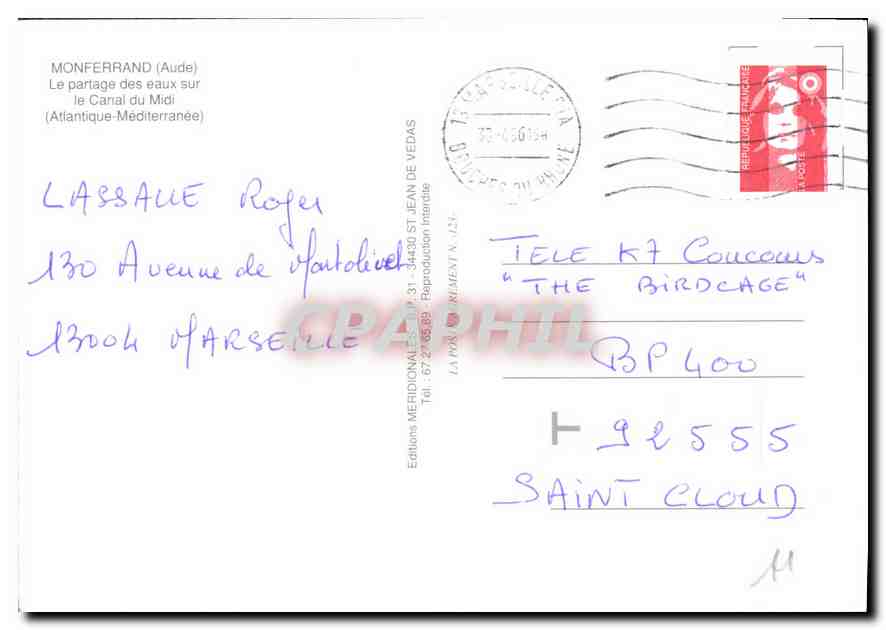 MONFERRAND (Aude)
Le partage des eaux sur
le Canal du Midi
(Atlantique-Méditerranée)
LASSALLE Roger
130 Avenue de Montolivet
13004 MARSEILLE
Editions MERIDIONALES - B.P. 31 - 34430 ST JEAN DE VEDAS
Tél. : 67 27 65 89 - Reproduction Interdite
CPAPHIL
13 MARSEILLE
BOUCHES DU RHONE
REPUBLIQUE FRANÇAISE
LA POSTE
TELE K7 Concours
"THE BIRDCAGE"
BP 400
T 92555
SAINT CLOUD